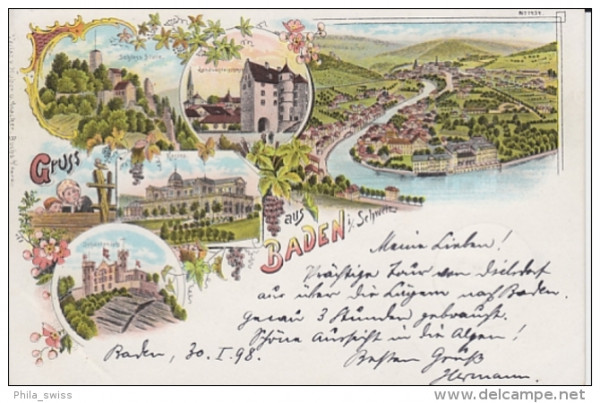 No 1934.
Schloss Stein
Gruss
Kursaal
aus
BADEN
i/Schweiz
Meine Lieben!
Prächtige Tour von Dielsdorf
aus über die Lägern nach Baden.
Genau 3 Stunden gebraucht.
Schöne Aussicht in die Alpen!
Baden, 30. I. 98.
Besten Gruß
Hermann.
Phila_swiss
delcampe.net